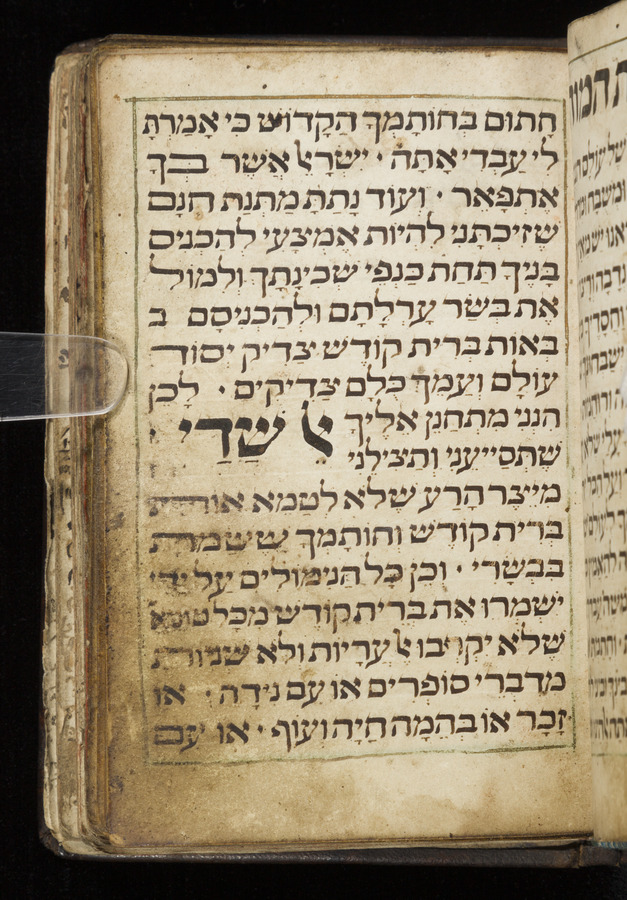 חָתוּם בְּחוֹתָמְךָ הַקָּדוֹשׁ כִּי אָמַרְתָּ
לִי עַבְדִּי אַתָּה · ישראל אֲשֶׁר בְּךָ
אֶתְפָּאֵר · וְעוֹד נָתַתָּ מַתְּנַת חִנָּם
שֶׁזִיכִּתָנִי לִהְיוֹת אֶמְצָעִי לְהַכְנִיס
בָּנֶיךָ תַּחַת כַּנְפֵי שְׁכִינָתָךְ וְלִמוֹל
אֶת בְּשַׂר עָרְלָתָם וּלְהַכְנִיסָם ב
בְּאוֹת בְּרִית קוֹדֶשׁ צַדִּיק יְסוֹד
עוֹלָם וְעַמְךָ כֻּלָם צַדִּיקִים · לָכֵן
הנני מתחנן אליך אל שַׁדַּי
שֶׁתְּסִייְעֵנִי וְתַצִילֵנִי
מִיֵּצֶר הָרַע שֶׁלֹא לְטַמֵא אוֹת
בְּרִית קוֹדֶשׁ וְחוֹתָמְךָ שֶׁשַּׂמְתָּ
בִּבְשָׂרִי · וְכֵן כָּל הַנִּימוֹלִים עַל יָדִי
יִשְׁמְרוּ אֶת בְּרִית קוֹדֶשׁ מִכָּל טוּמְאָה
שֶׁלֹא יִקְרְבוּ אל עֲרָיוֹת וְלֹא
מִדִּבְרֵי סוֹפְרִים אוֹ עִם נִידָה · אוֹ
זָכָר אוֹ בְּהֵמָה חַיָה וָעוֹף · אוֹ עִם